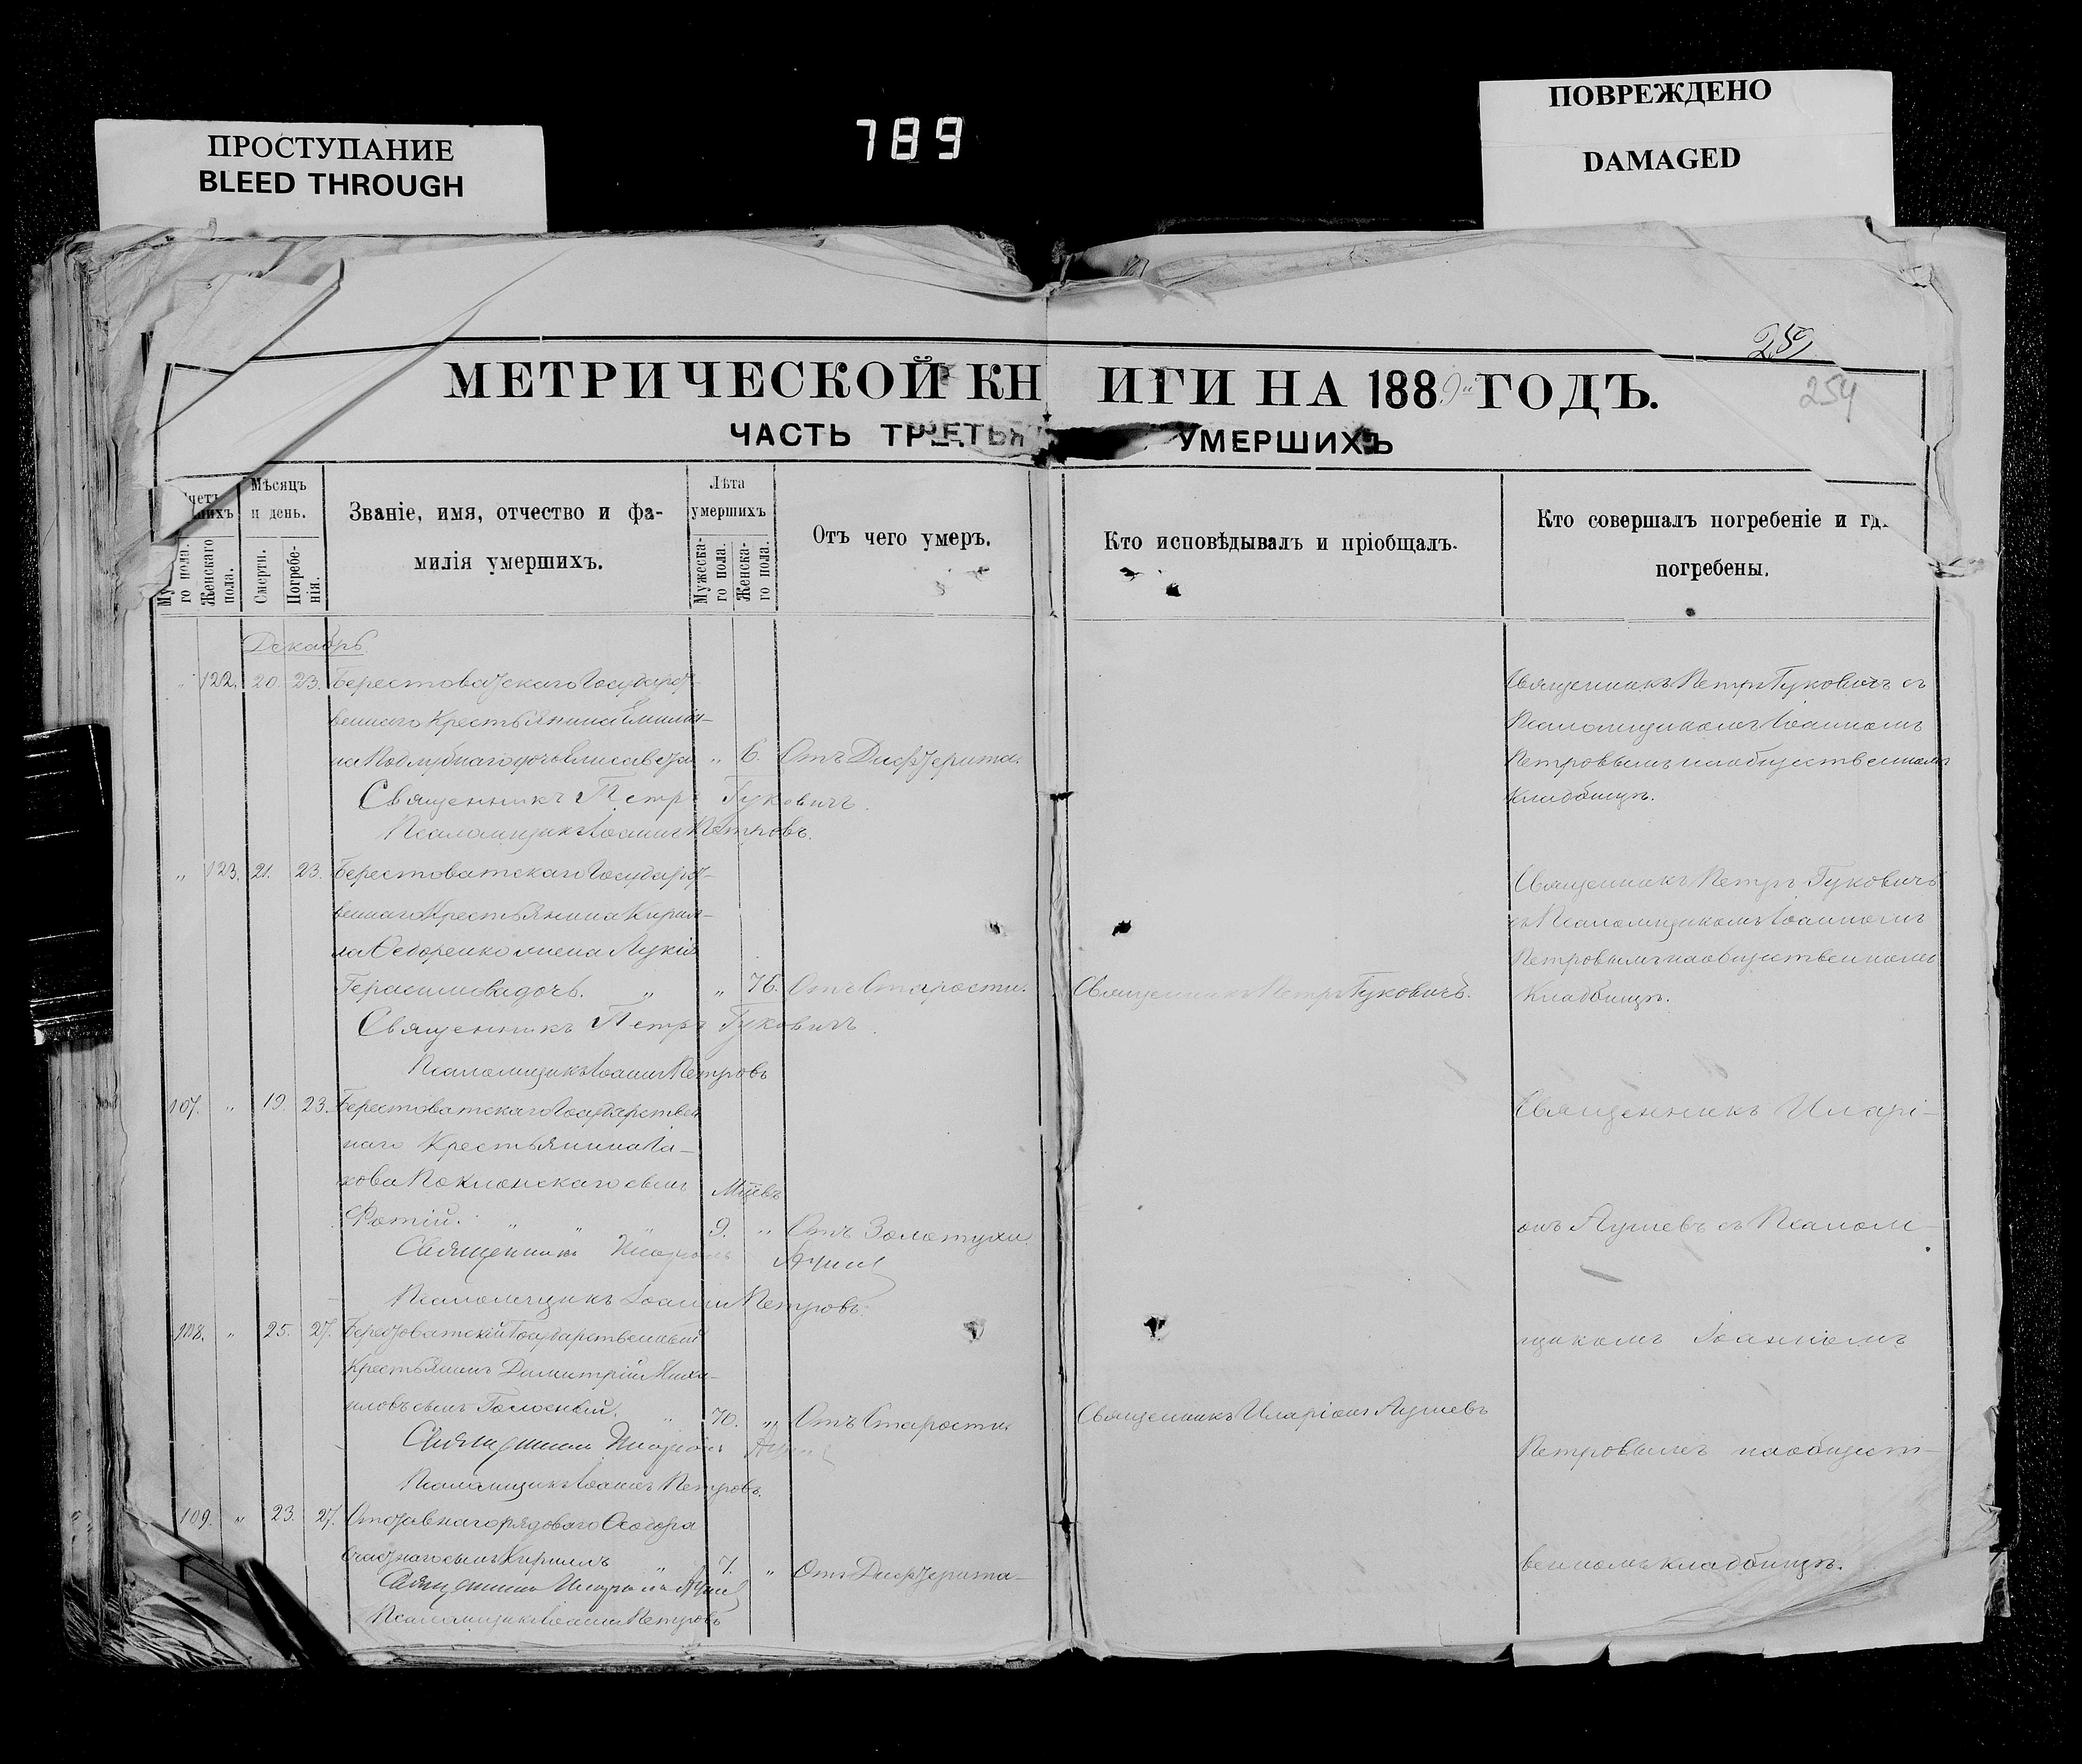 ПРОСТУПАНИЕ
BLEED THROUGH
789
ПОВРЕЖДЕНО
DAMAGED
259
254
МЕТРИЧЕСКОЙ КНИГИ НА 1889й ГОДЪ.
ЧАСТЬ ТРЕТЬЯ УМЕРШИХЪ
Мѣсяцъ
и день.
Смерти.
Погребе-
нія.
Женскаго
пола.
го пола.
Званіе, имя, отчество и фа-
милія умершихъ.
Лѣта
умершихъ
Мужеска-
го пола.
Женска-
го пола.
Отъ чего умеръ.
Кто исповѣдывалъ и пріобщалъ.
Кто совершалъ погребеніе и гд
погребены.
Декабрь
„ 122. 20. 23. Берестоватскаго Государст-
веннаго Крестьянина Емилія-
на Поддубнаго дочь Елисавета „ 6. Отъ Дифтерита.
Священникъ Петръ Гуковичъ.
Псаломщикъ Іоаннъ Петровъ.
Священникъ Петръ Гуковичъ съ
Псаломщикомъ Іоанномъ
Петровымъ на общественномъ
Кладбищѣ.
„ 123. 21. 23. Берестоватскаго Государст-
веннаго Крестьянина Кирил-
ла Ѳедоренко жена Лукія
Герасимова дочь. „ „ 76. Отъ Старости. Священникъ Петръ Гуковичъ.
Священникъ Петръ Гуковичъ.
Псаломщикъ Іоаннъ Петровъ
Священникъ Петръ Гуковичъ
съ Псаломщикомъ Іоанномъ
Петровымъ на общественномъ
Кладбищѣ.
107. „ 19. 23. Берестоватскаго Государствен
наго Крестьянина Іа-
кова Поклонскаго сынъ Мцевъ
Фотій. „ „ „ 9. „ Отъ Золотухи
Священникъ Иларіонъ Лущевъ
Псаломщикъ Іоаннъ Петровъ.
108. „ 25. 27. Берестоватскій Государственный
Крестьянинъ Димитрій Миха-
иловъ сынъ „ 70. „ Отъ Старости Священникъ Иларіонъ Лущевъ
Священникъ Иларіонъ
Псаломщикъ Іоаннъ Петровъ.
109. „ 23. 27. Отставнаго рядоваго Ѳеодора
сынъ Кириллъ „ 7. „ Отъ Дифтерита
Священникъ Иларіонъ
Псаломщикъ Іоаннъ Петровъ
Священникъ Иларі-
онъ Лущевъ съ Псалом-
щикомъ Іоанномъ
Петровымъ на общест-
венномъ кладбищѣ.